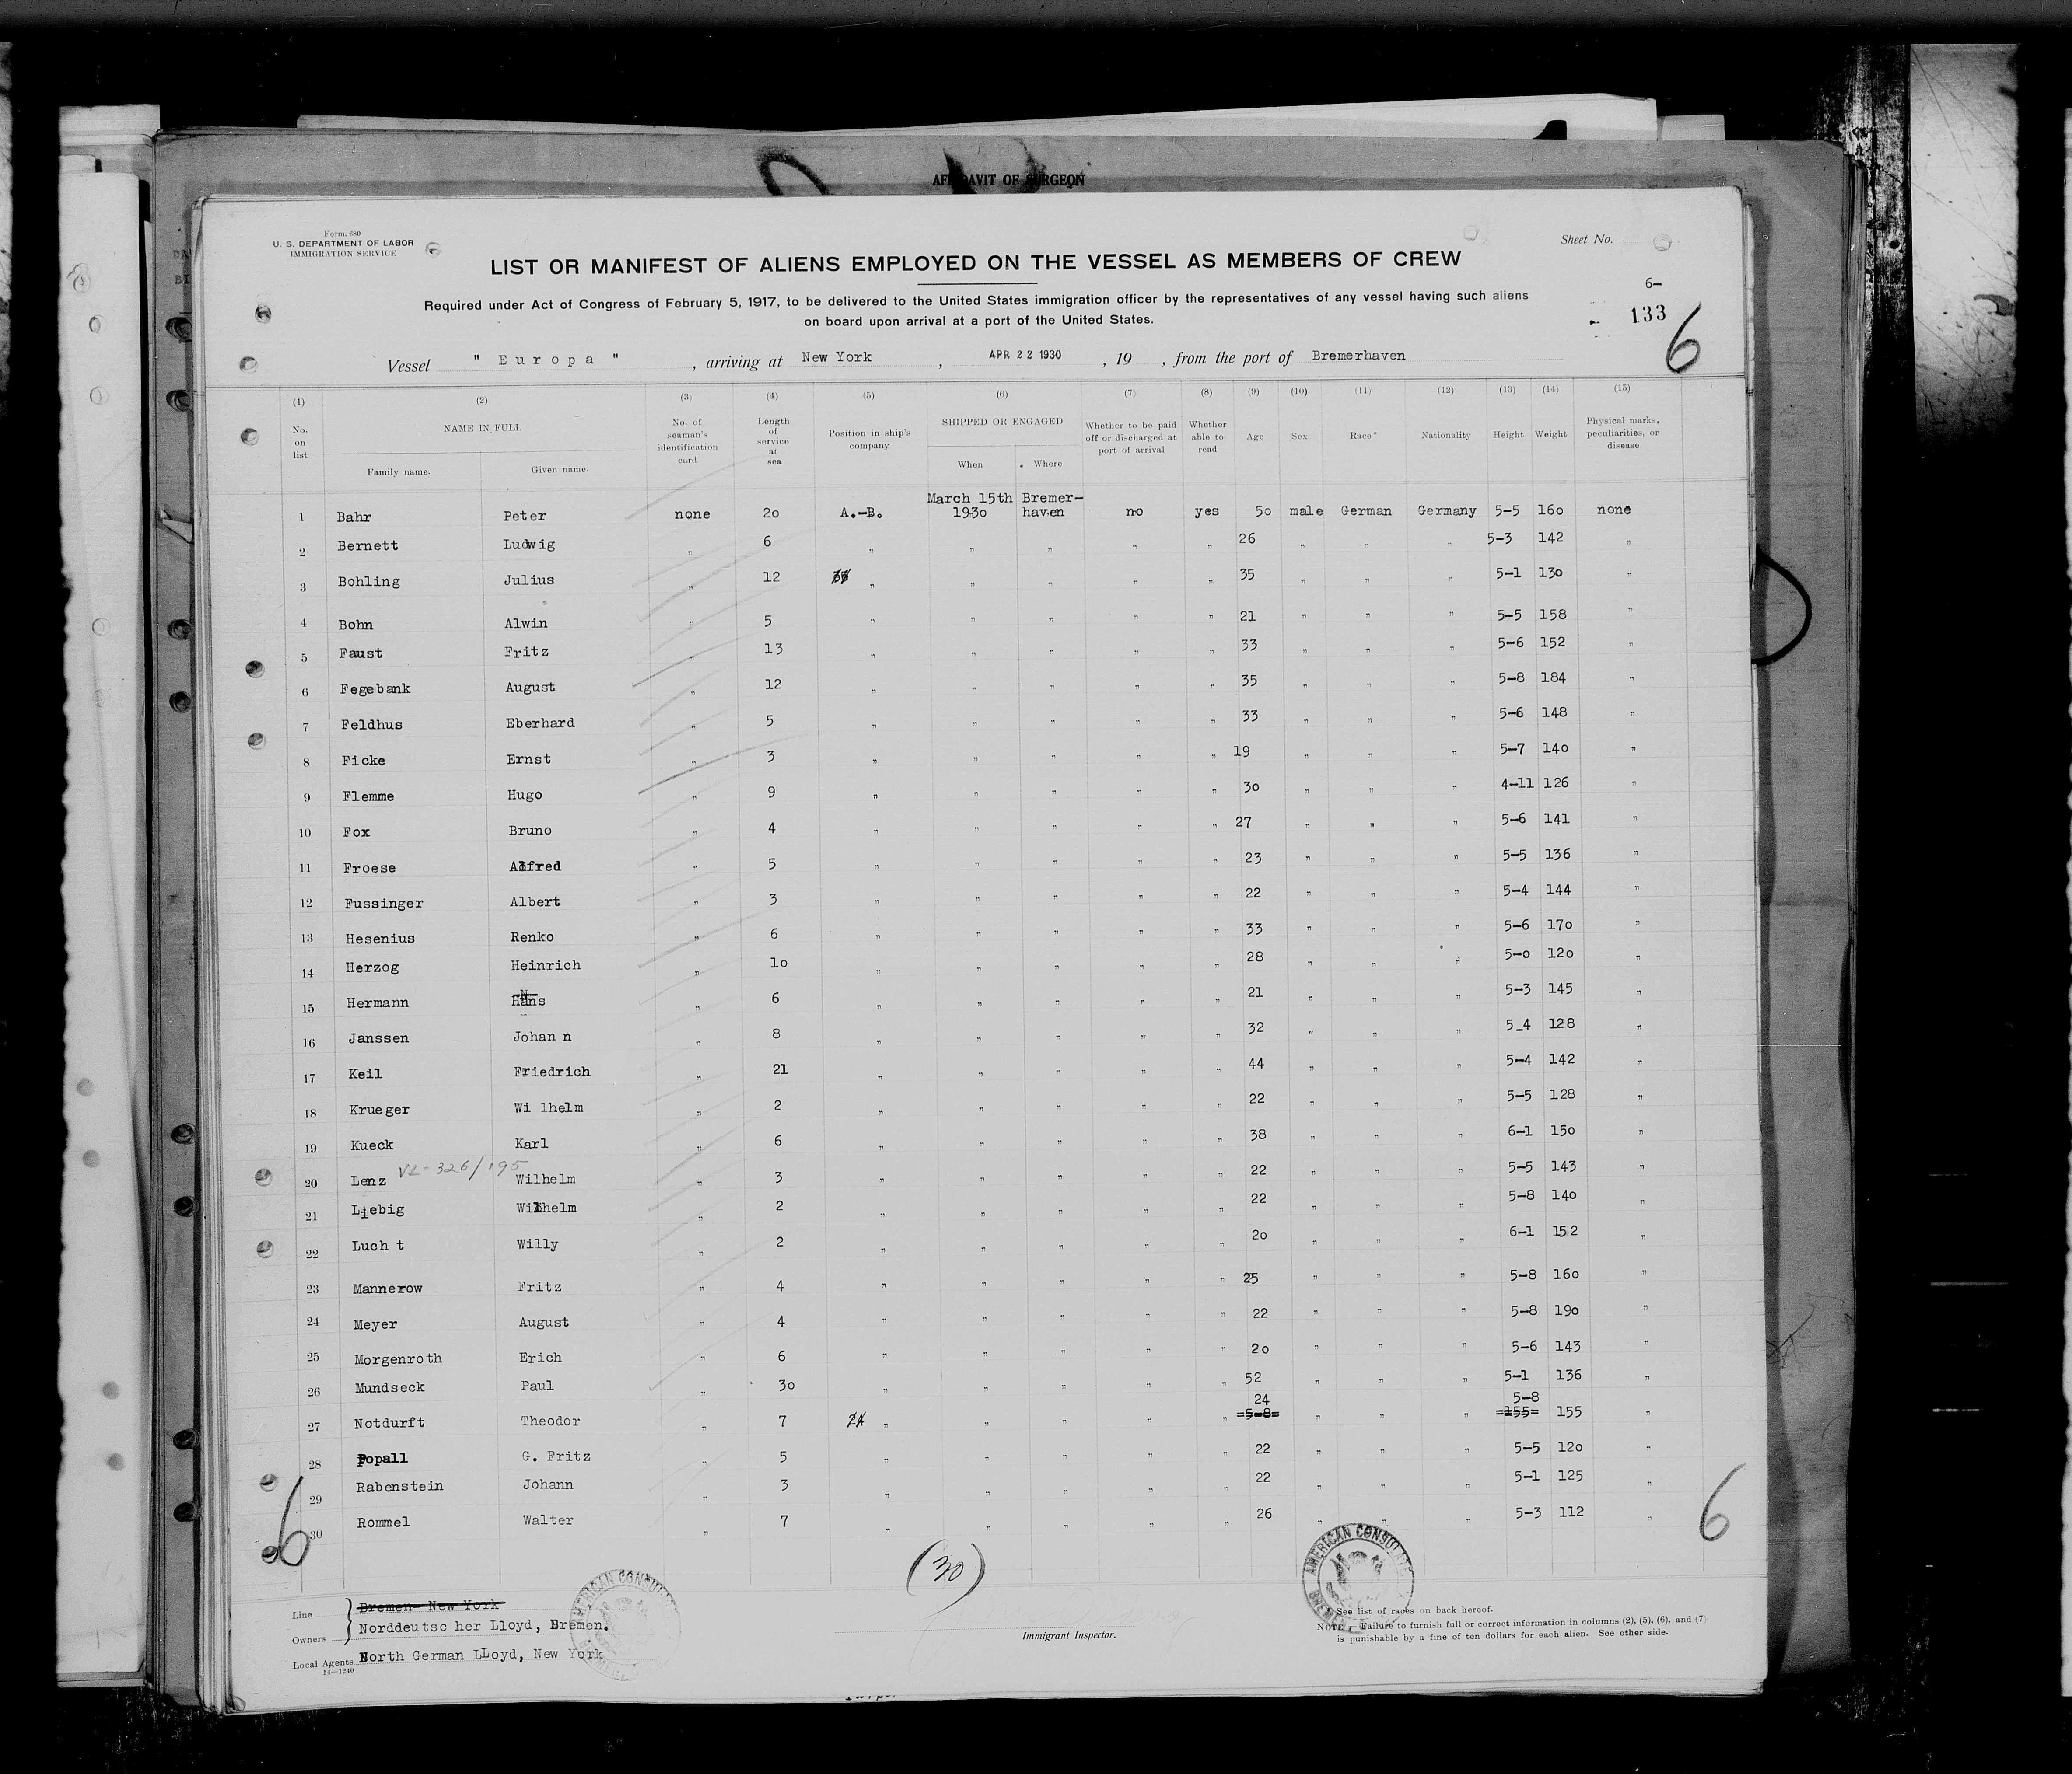 AFFIDAVIT OF SURGEON
Form 680
U. S. DEPARTMENT OF LABOR
IMMIGRATION SERVICE
Sheet No.
LIST OR MANIFEST OF ALIENS EMPLOYED ON THE VESSEL AS MEMBERS OF CREW
Required under Act of Congress of February 5, 1917, to be delivered to the United States immigration officer by the representatives of any vessel having such aliens
on board upon arrival at a port of the United States.
6-
133
6
Vessel " Europa " , arriving at New York , APR 22 1930 , 19 , from the port of Bremerhaven
(1) (2) (3) (4) (5) (6) (7) (8) (9) (10) (11) (12) (13) (14) (15)
No. on list NAME IN FULL Family name. Given name. No. of seaman's identification card Length of service at sea Position in ship's company SHIPPED OR ENGAGED When Where Whether to be paid off or discharged at port of arrival Whether able to read Age Sex Race* Nationality Height Weight Physical marks, peculiarities, or disease
1 Bahr Peter none 20 A.-B. March 15th 1930 Bremer-haven no yes 50 male German Germany 5-5 160 none
2 Bernett Ludwig " 6 " " " " " 26 " " " 5-3 142 "
3 Bohling Julius " 12 " " " " " 35 " " " 5-1 130 "
4 Bohn Alwin " 5 " " " " " 21 " " " 5-5 158 "
5 Faust Fritz " 13 " " " " " 33 " " " 5-6 152 "
6 Fegebank August " 12 " " " " " 35 " " " 5-8 184 "
7 Feldhus Eberhard " 5 " " " " " 33 " " " 5-6 148 "
8 Ficke Ernst " 3 " " " " " 19 " " " 5-7 140 "
9 Flemme Hugo " 9 " " " " " 30 " " " 4-11 126 "
10 Fox Bruno " 4 " " " " " 27 " " " 5-6 141 "
11 Froese Alfred " 5 " " " " " 23 " " " 5-5 136 "
12 Fussinger Albert " 3 " " " " " 22 " " " 5-4 144 "
13 Hesenius Renko " 6 " " " " " 33 " " " 5-6 170 "
14 Herzog Heinrich " 10 " " " " " 28 " " " 5-0 120 "
15 Hermann Hans " 6 " " " " " 21 " " " 5-3 145 "
16 Janssen Johan n " 8 " " " " " 32 " " " 5_4 128 "
17 Keil Friedrich " 21 " " " " " 44 " " " 5-4 142 "
18 Krueger Wi lhelm " 2 " " " " " 22 " " " 5-5 128 "
19 Kueck Karl " 6 " " " " " 38 " " " 6-1 150 "
VL-326/195
20 Lenz Wilhelm " 3 " " " " " 22 " " " 5-5 143 "
21 Liebig Wilhelm " 2 " " " " " 22 " " " 5-8 140 "
22 Luch t Willy " 2 " " " " " 20 " " " 6-1 152 "
23 Mannerow Fritz " 4 " " " " " 25 " " " 5-8 160 "
24 Meyer August " 4 " " " " " 22 " " " 5-8 190 "
25 Morgenroth Erich " 6 " " " " " 20 " " " 5-6 143 "
26 Mundseck Paul " 30 " " " " " 52 " " " 5-1 136 "
24 5-8
27 Notdurft Theodor " 7 " " " " " =5-8= " " " =155= 155 "
28 Popall G. Fritz " 5 " " " " " 22 " " " 5-5 120 "
29 Rabenstein Johann " 3 " " " " " 22 " " " 5-1 125 "
30 Rommel Walter " 7 " " " " " 26 " " " 5-3 112 "
6
6
(30)
AMERICAN CONSULATE
Line Bremen- New York
Owners Norddeutsc her Lloyd, Bremen.
Local Agents North German LLoyd, New York
14—1240
Immigrant Inspector.
AMERICAN CONSULATE
* See list of races on back hereof.
NOTE.—Failure to furnish full or correct information in columns (2), (5), (6), and (7)
is punishable by a fine of ten dollars for each alien. See other side.